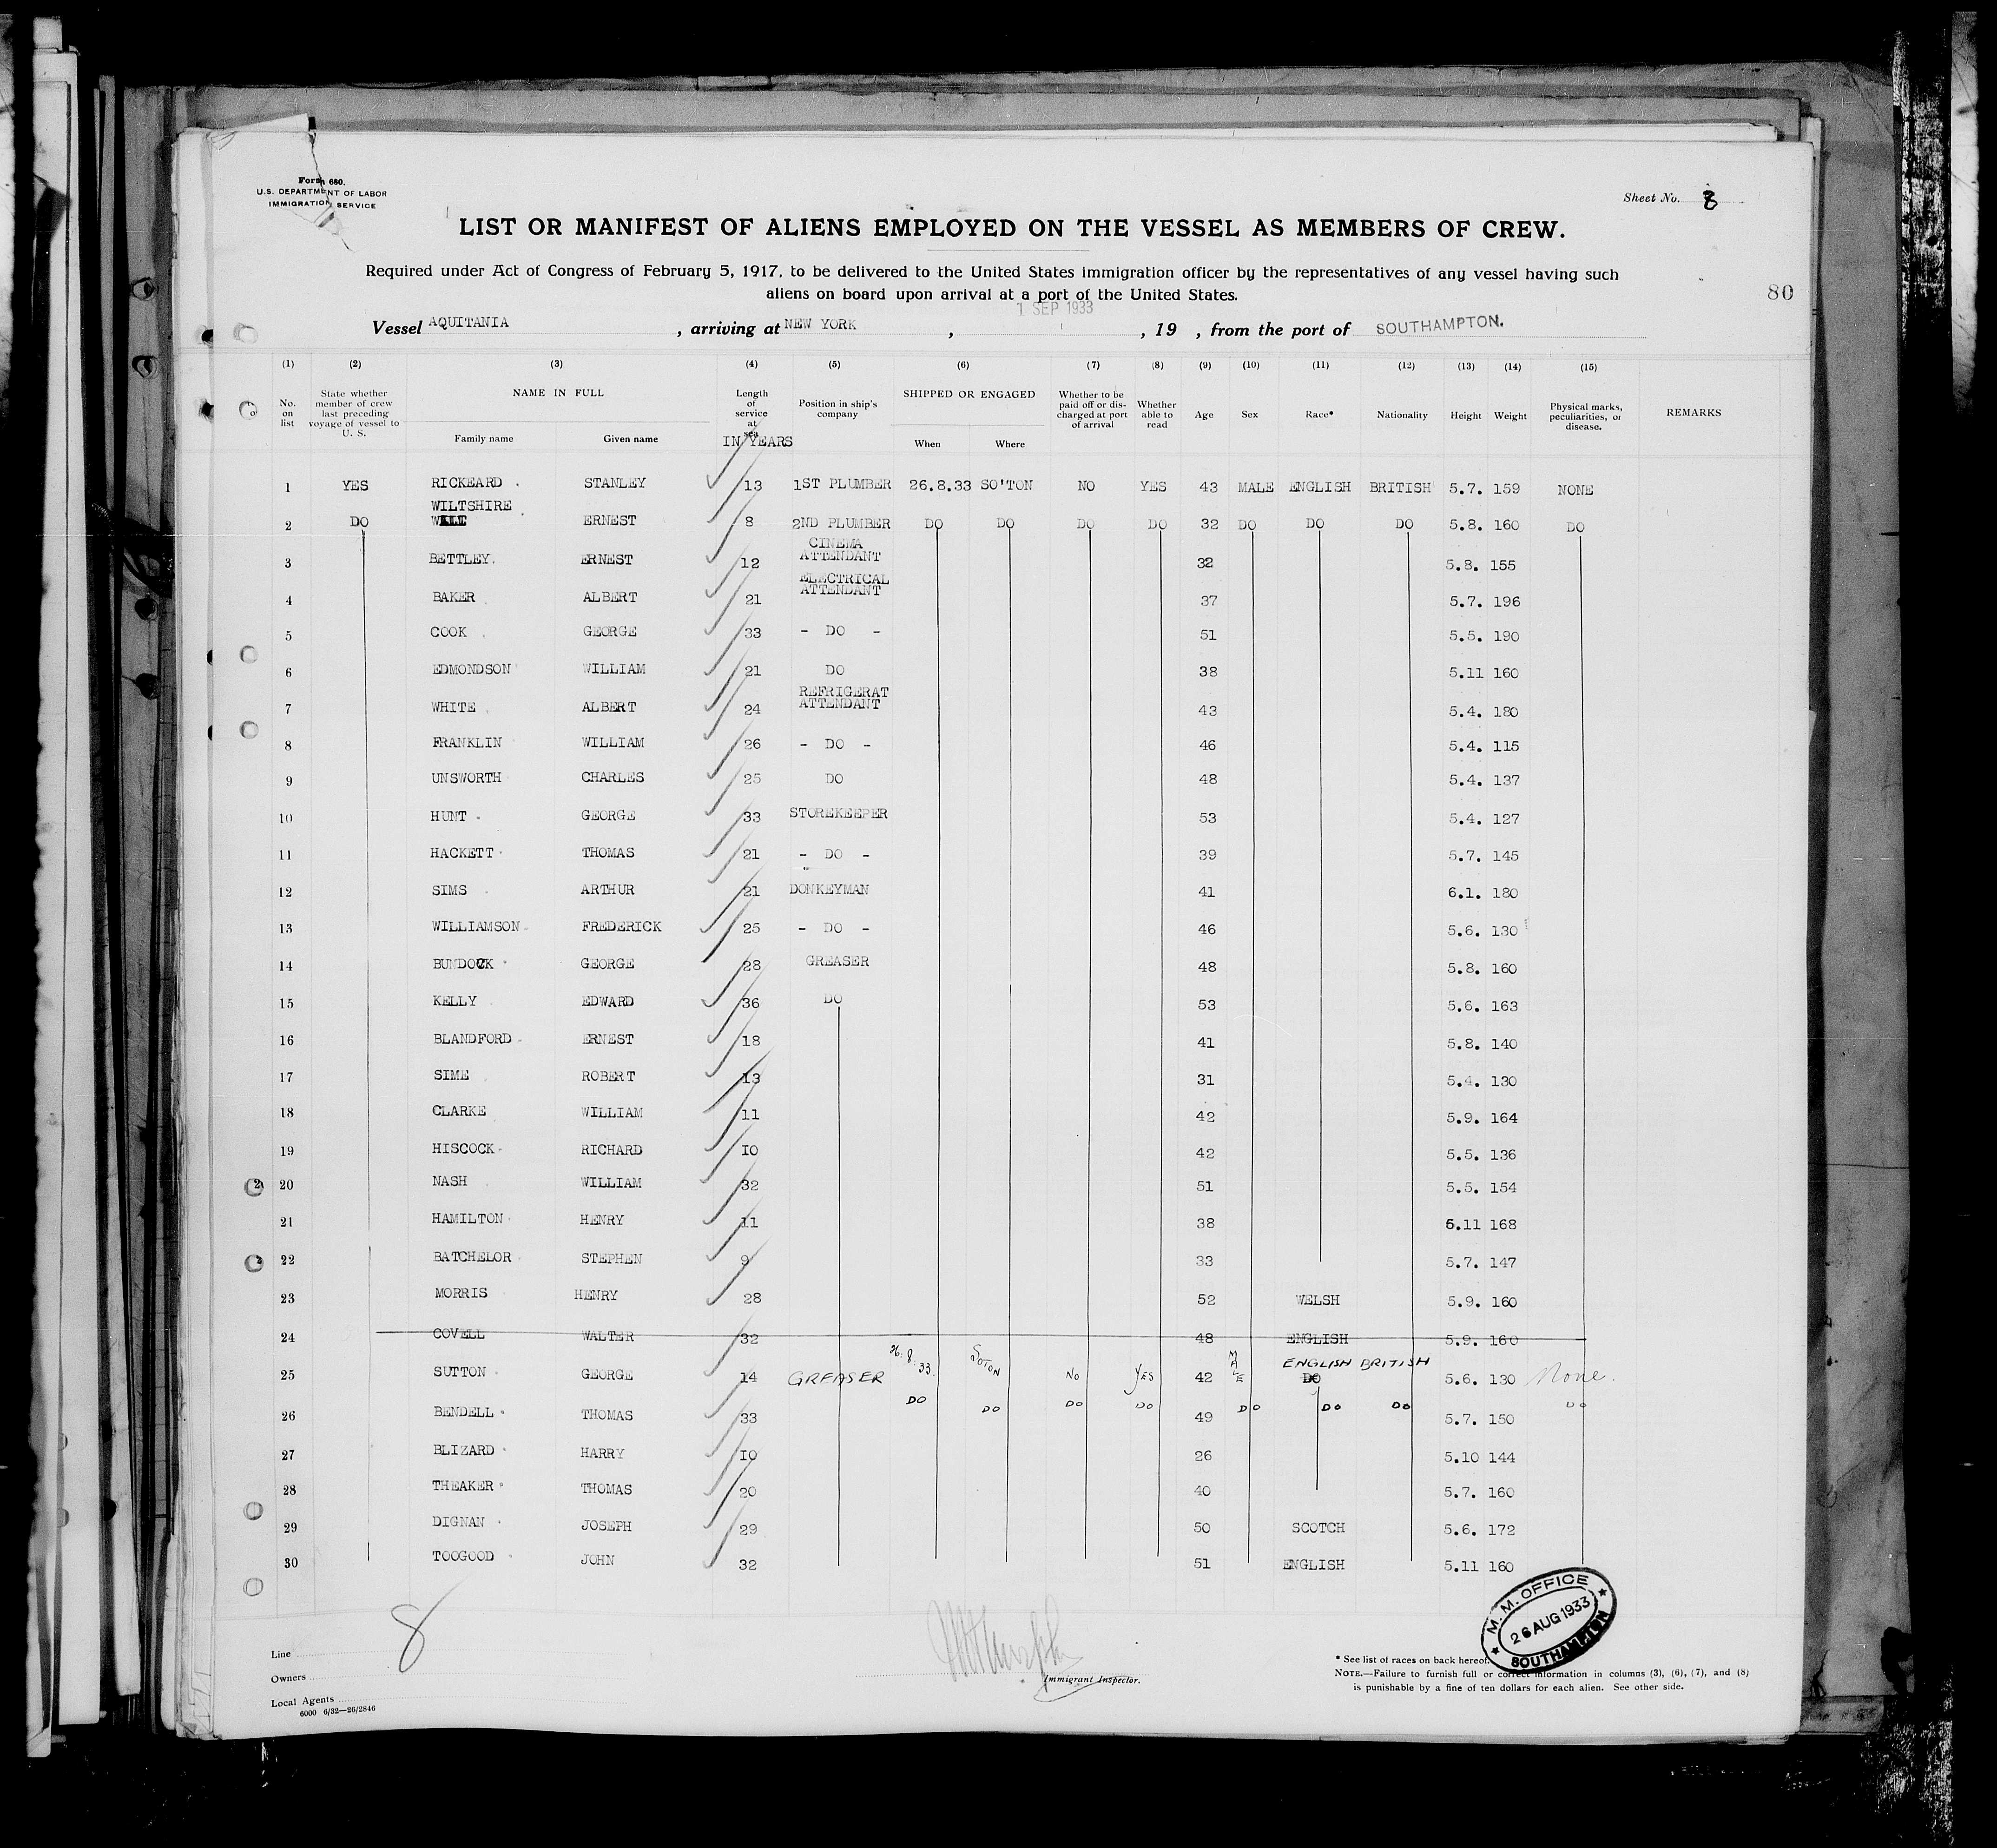 Form 680.
U.S. DEPARTMENT OF LABOR
IMMIGRATION SERVICE
Sheet No. 8
LIST OR MANIFEST OF ALIENS EMPLOYED ON THE VESSEL AS MEMBERS OF CREW.
Required under Act of Congress of February 5, 1917, to be delivered to the United States immigration officer by the representatives of any vessel having such
aliens on board upon arrival at a port of the United States.
80
1 SEP 1933
Vessel AQUITANIA, arriving at NEW YORK, , 19 , from the port of SOUTHAMPTON.
(1) (2) (3) (4) (5) (6) (7) (8) (9) (10) (11) (12) (13) (14) (15)
No. on list State whether member of crew last preceding voyage of vessel to U. S. NAME IN FULL Family name Given name Length of service at sea IN YEARS Position in ship's company SHIPPED OR ENGAGED When Where Whether to be paid off or discharged at port of arrival Whether able to read Age Sex Race* Nationality Height Weight Physical marks, peculiarities, or disease. REMARKS
1 YES RICKEARD STANLEY 13 1ST PLUMBER 26.8.33 SO'TON NO YES 43 MALE ENGLISH BRITISH 5.7. 159 NONE
WILTSHIRE
2 DO ERNEST 8 2ND PLUMBER DO DO DO DO 32 DO DO DO 5.8. 160 DO
3 BETTLEY. ERNEST 12 CINEMA ATTENDANT 32 5.8. 155
4 BAKER ALBERT 21 ELECTRICAL ATTENDANT 37 5.7. 196
5 COOK GEORGE 33 - DO - 51 5.5. 190
6 EDMONDSON WILLIAM 21 DO 38 5.11 160
7 WHITE ALBERT 24 REFRIGERAT ATTENDANT 43 5.4. 180
8 FRANKLIN WILLIAM 26 - DO - 46 5.4. 115
9 UNSWORTH CHARLES 25 DO 48 5.4. 137
10 HUNT GEORGE 33 STOREKEEPER 53 5.4. 127
11 HACKETT THOMAS 21 - DO - 39 5.7. 145
12 SIMS ARTHUR 21 DONKEYMAN 41 6.1. 180
13 WILLIAMSON FREDERICK 25 - DO - 46 5.6. 130
14 BUNDOCK GEORGE 28 GREASER 48 5.8. 160
15 KELLY EDWARD 36 DO 53 5.6. 163
16 BLANDFORD ERNEST 18 41 5.8. 140
17 SIME ROBERT 13 31 5.4. 130
18 CLARKE WILLIAM 11 42 5.9. 164
19 HISCOCK RICHARD IO 42 5.5. 136
20 NASH WILLIAM 32 51 5.5. 154
21 HAMILTON HENRY 11 38 5.11 168
22 BATCHELOR STEPHEN 9 33 5.7. 147
23 MORRIS HENRY 28 52 WELSH 5.9. 160
24 COVELL WALTER 32 48 ENGLISH 5.9. 160
25 SUTTON GEORGE 14 GREASER 26.8.33. SOTON NO YES 42 MALE ENGLISH BRITISH DO 5.6. 130 None.
26 BENDELL THOMAS 33 DO DO DO DO 49 DO DO DO 5.7. 150 DO
27 BLIZARD HARRY IO 26 5.10 144
28 THEAKER THOMAS 20 40 5.7. 160
29 DIGNAN JOSEPH 29 50 SCOTCH 5.6. 172
30 TOOGOOD JOHN 32 51 ENGLISH 5.11 160
M. M. OFFICE
26 AUG 1933
SOUTHAMPTON
8
Line
Owners
Local Agents
6000 6/32—26/2846
Immigrant Inspector.
* See list of races on back hereof.
NOTE.—Failure to furnish full or correct information in columns (3), (6), (7), and (8)
is punishable by a fine of ten dollars for each alien. See other side.